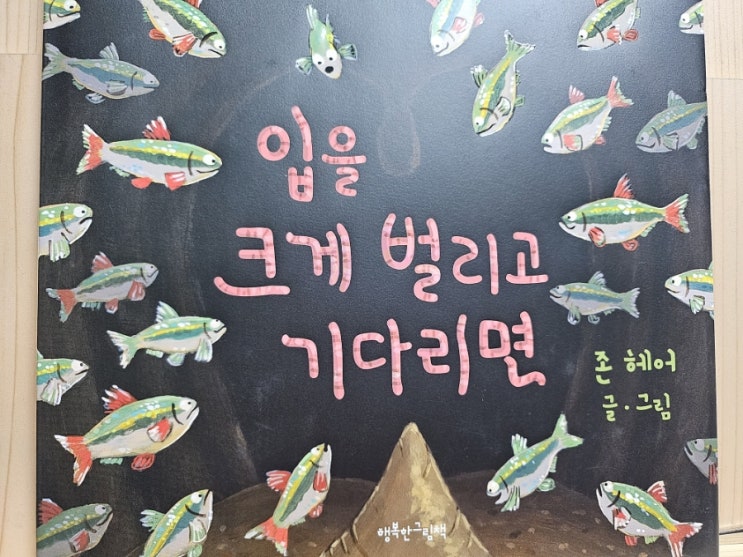 입을
크게 벌리고
기다리면
존 헤어
글·그림
행복한그림책